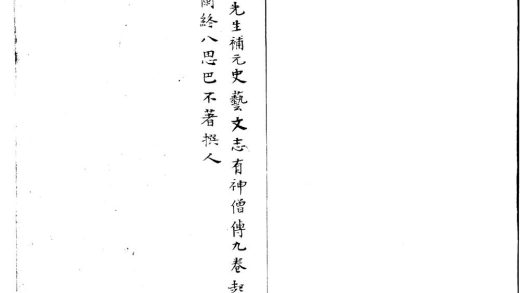 先生補元史藝文志有神僧傳九卷起
蘭終八思巴不著撰人